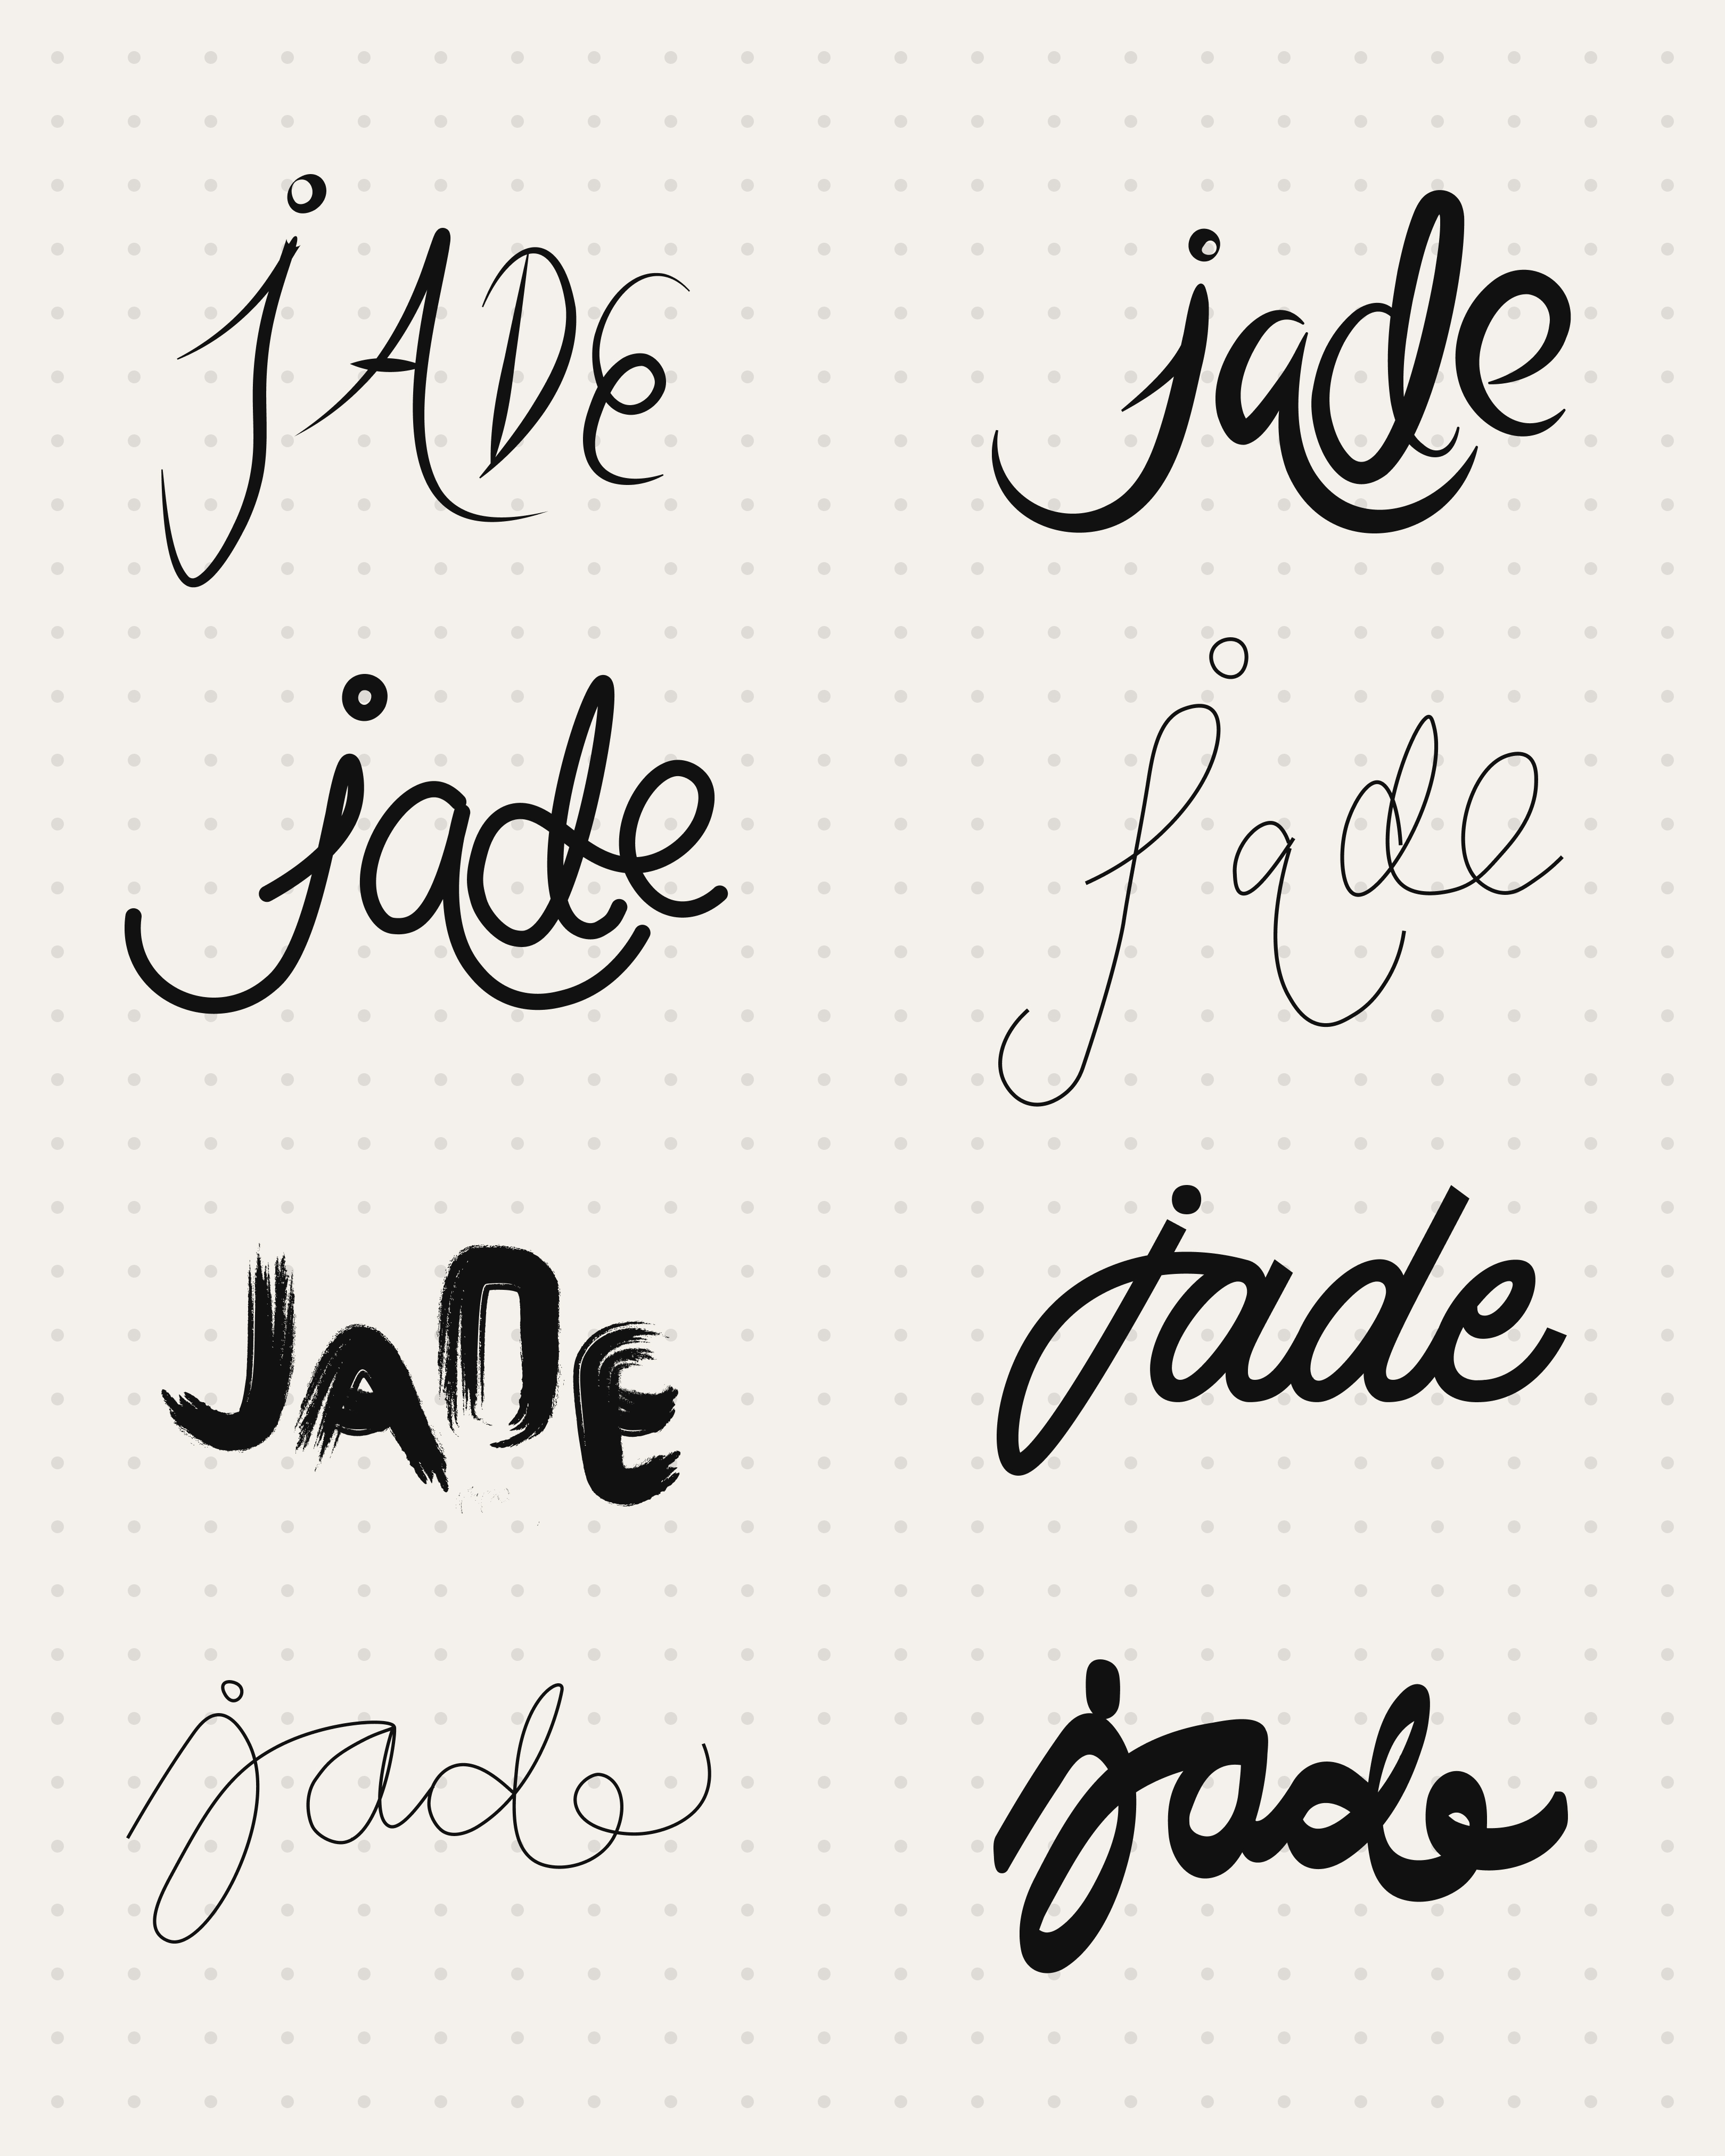 jADE
jade
jade
jade
JADE
jade
jade
jade